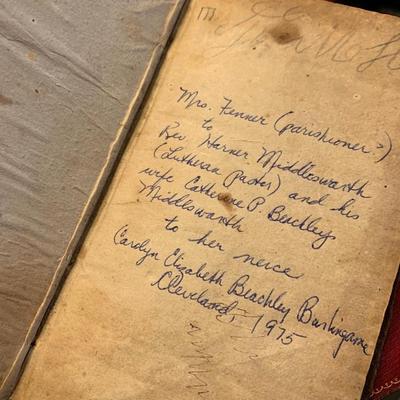 Mrs. Fenner (parishioner?)
to
Rev. Harner Middleswarth
(Lutheran Pastor) and his
wife Catherine P. Beachley
Middleswarth
to her neice
Carolyn Elizabeth Beachley Burlingame
Cleveland, 1975